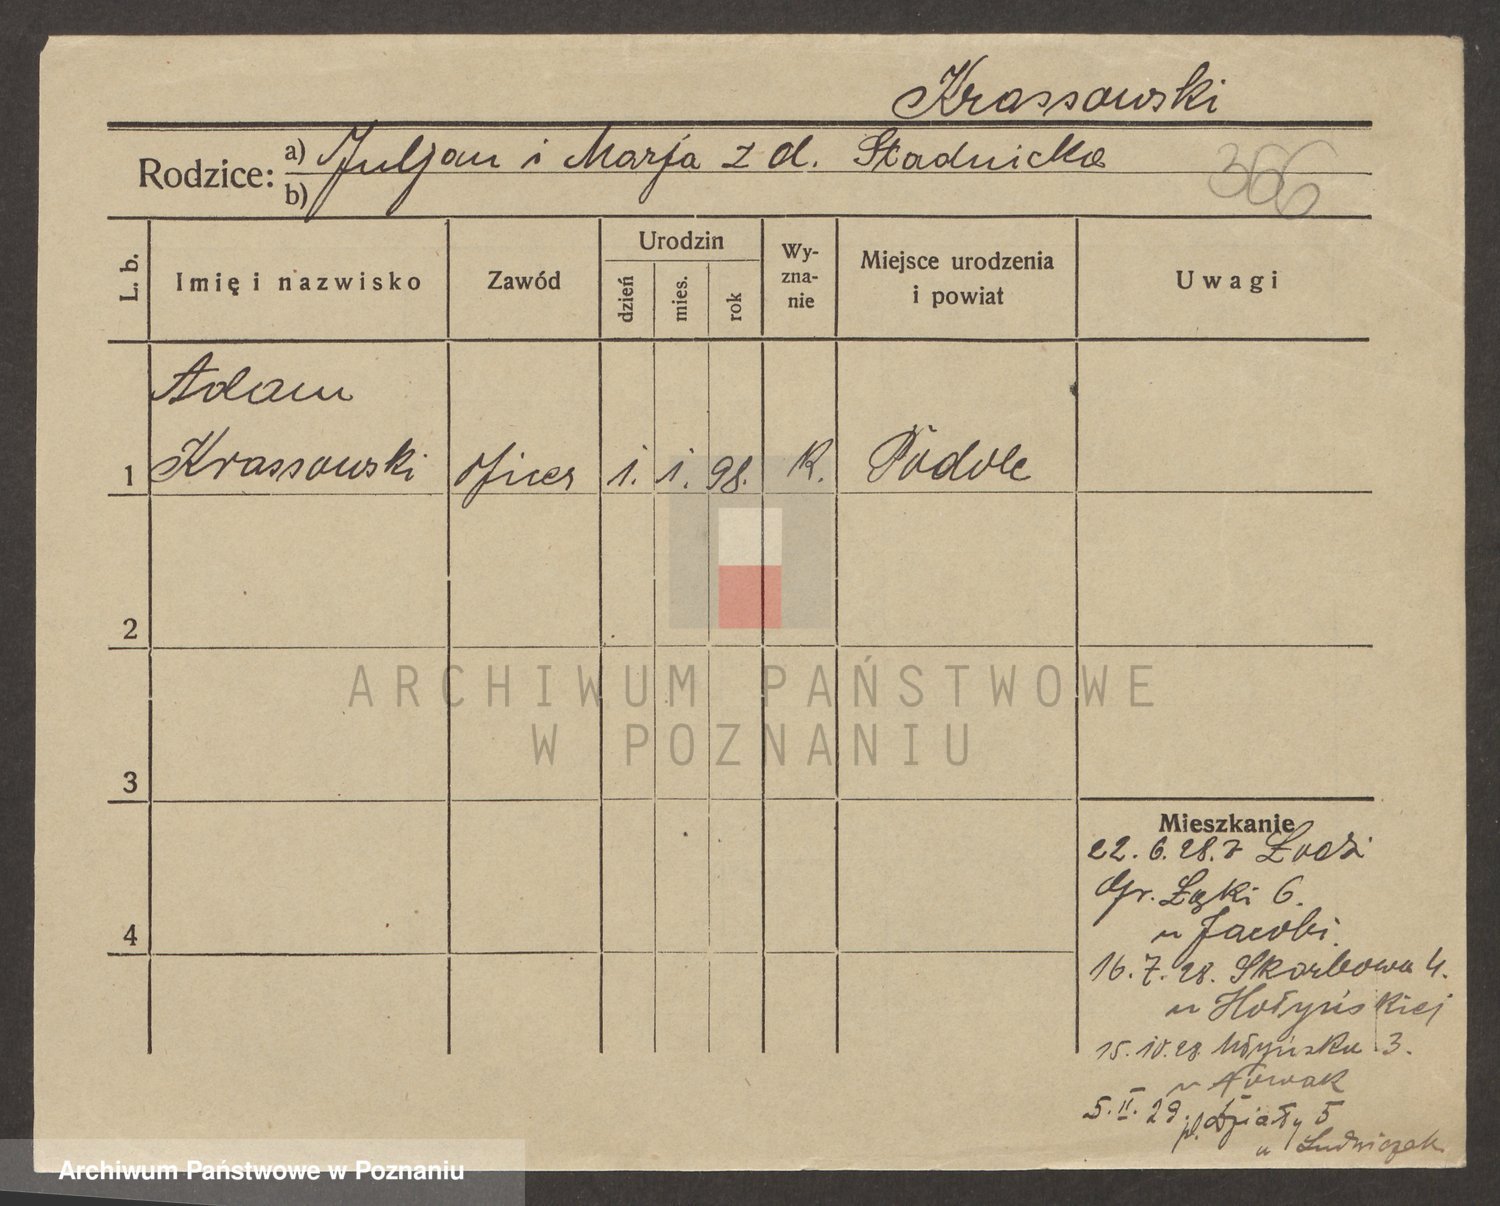 Krassowski
Rodzice: a) Juljan i Marja z d. Stadnicka
b)
366
L. b.
Imię i nazwisko
Zawód
Urodzin
dzień
mies.
rok
Wy-
zna-
nie
Miejsce urodzenia
i powiat
Uwagi
Adam
1 Krassowski oficer 1. 1. 98. R. Podole
2
3
4
Mieszkanie
22. 6. 28. z Łodzi
Gr. Łąki 6.
u Jacobi.
16. 7. 28. Skarbowa 4.
u Hołyńskiej
15. 10. 28 Młyńska 3.
u Nowak
5. II. 29. pl. Działy 5
u Ludwiczak
ARCHIWUM PAŃSTWOWE
W POZNANIU
Archiwum Państwowe w Poznaniu